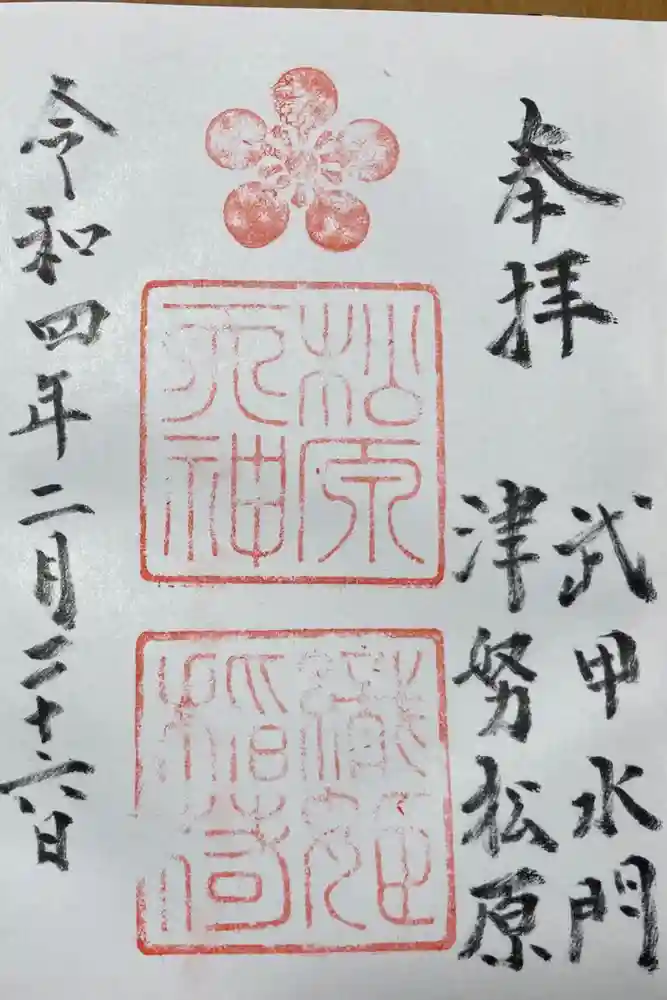 奉拝
武甲水門
津努松原
松原
天神
織姫
稲荷
令和四年二月二十六日